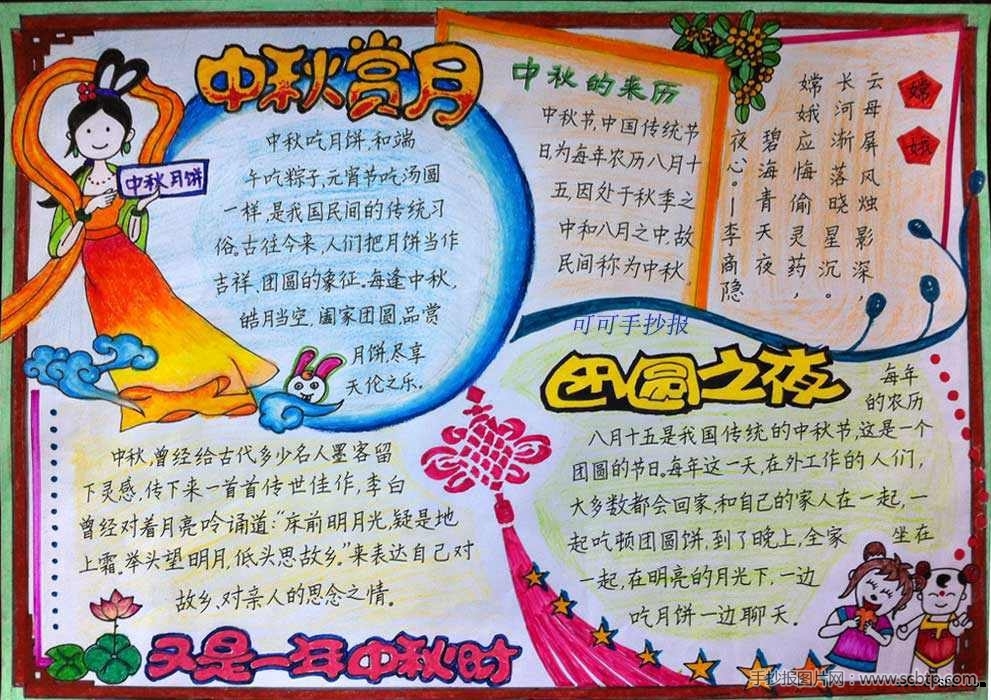 中秋赏月
中秋月饼
中秋吃月饼,和端
午吃粽子,元宵节吃汤圆
一样,是我国民间的传统习
俗。古往今来,人们把月饼当作
吉祥、团圆的象征。每逢中秋,
皓月当空,阖家团圆,品赏
月饼,尽享
天伦之乐。
中秋的来历
中秋节,中国传统节
日为每年农历八月十
五,因处于秋季之
中和八月之中,故
民间称为中秋。
嫦
娥
云母屏风烛影深,
长河渐落晓星沉。
嫦娥应悔偷灵药,
碧海青天夜
夜心。—李商隐
可可手抄报
中秋,曾经给古代多少名人墨客留
下灵感,传下来一首首传世佳作,李白
曾经对着月亮吟诵道:“床前明月光,疑是地
上霜。举头望明月,低头思故乡。”来表达自己对
故乡、对亲人的思念之情。
又是一年中秋时
团圆之夜
每年
的农历
八月十五是我国传统的中秋节,这是一个
团圆的节日。每年这一天,在外工作的人们,
大多数都会回家,和自己的家人在一起,一
起吃顿团圆饼,到了晚上,全家坐在
一起,在明亮的月光下,一边
吃月饼一边聊天.
手抄报图片网:www.scbtp.com